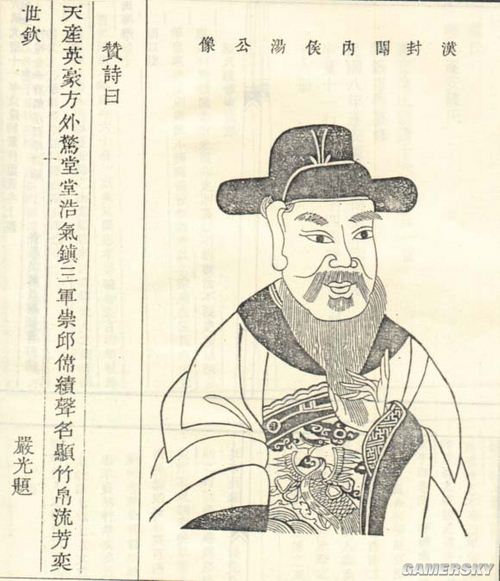 漢封關內侯湯公像
贊詩曰
天產英豪方外驚堂堂浩氣鎮三軍崇邱偹績聲名顯竹帛流芳奕
世欽
嚴光題
GAMERSKY